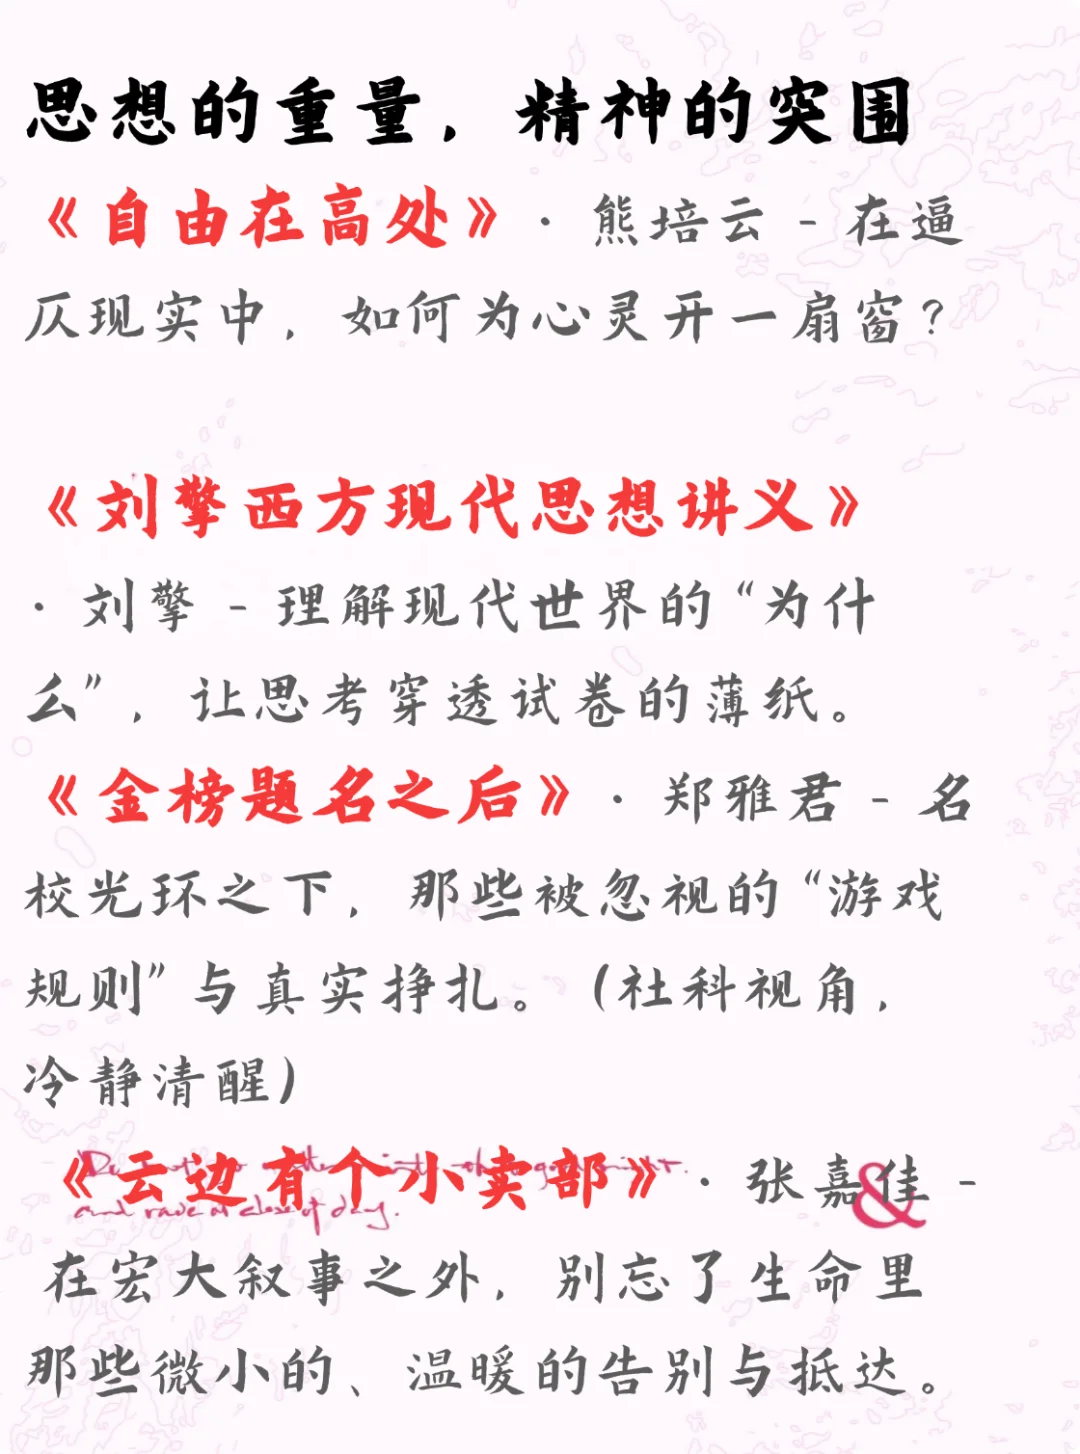 思想的重量，精神的突围
《自由在高处》·熊培云 - 在逼
仄现实中，如何为心灵开一扇窗？
《刘擎西方现代思想讲义》
·刘擎 - 理解现代世界的“为什
么”，让思考穿透试卷的薄纸。
《金榜题名之后》·郑雅君 - 名
校光环之下，那些被忽视的“游戏
规则”与真实挣扎。（社科视角，
冷静清醒）
《云边有个小卖部》·张嘉佳 -
&
and rave at close of day.
在宏大叙事之外，别忘了生命里
那些微小的、温暖的告别与抵达。